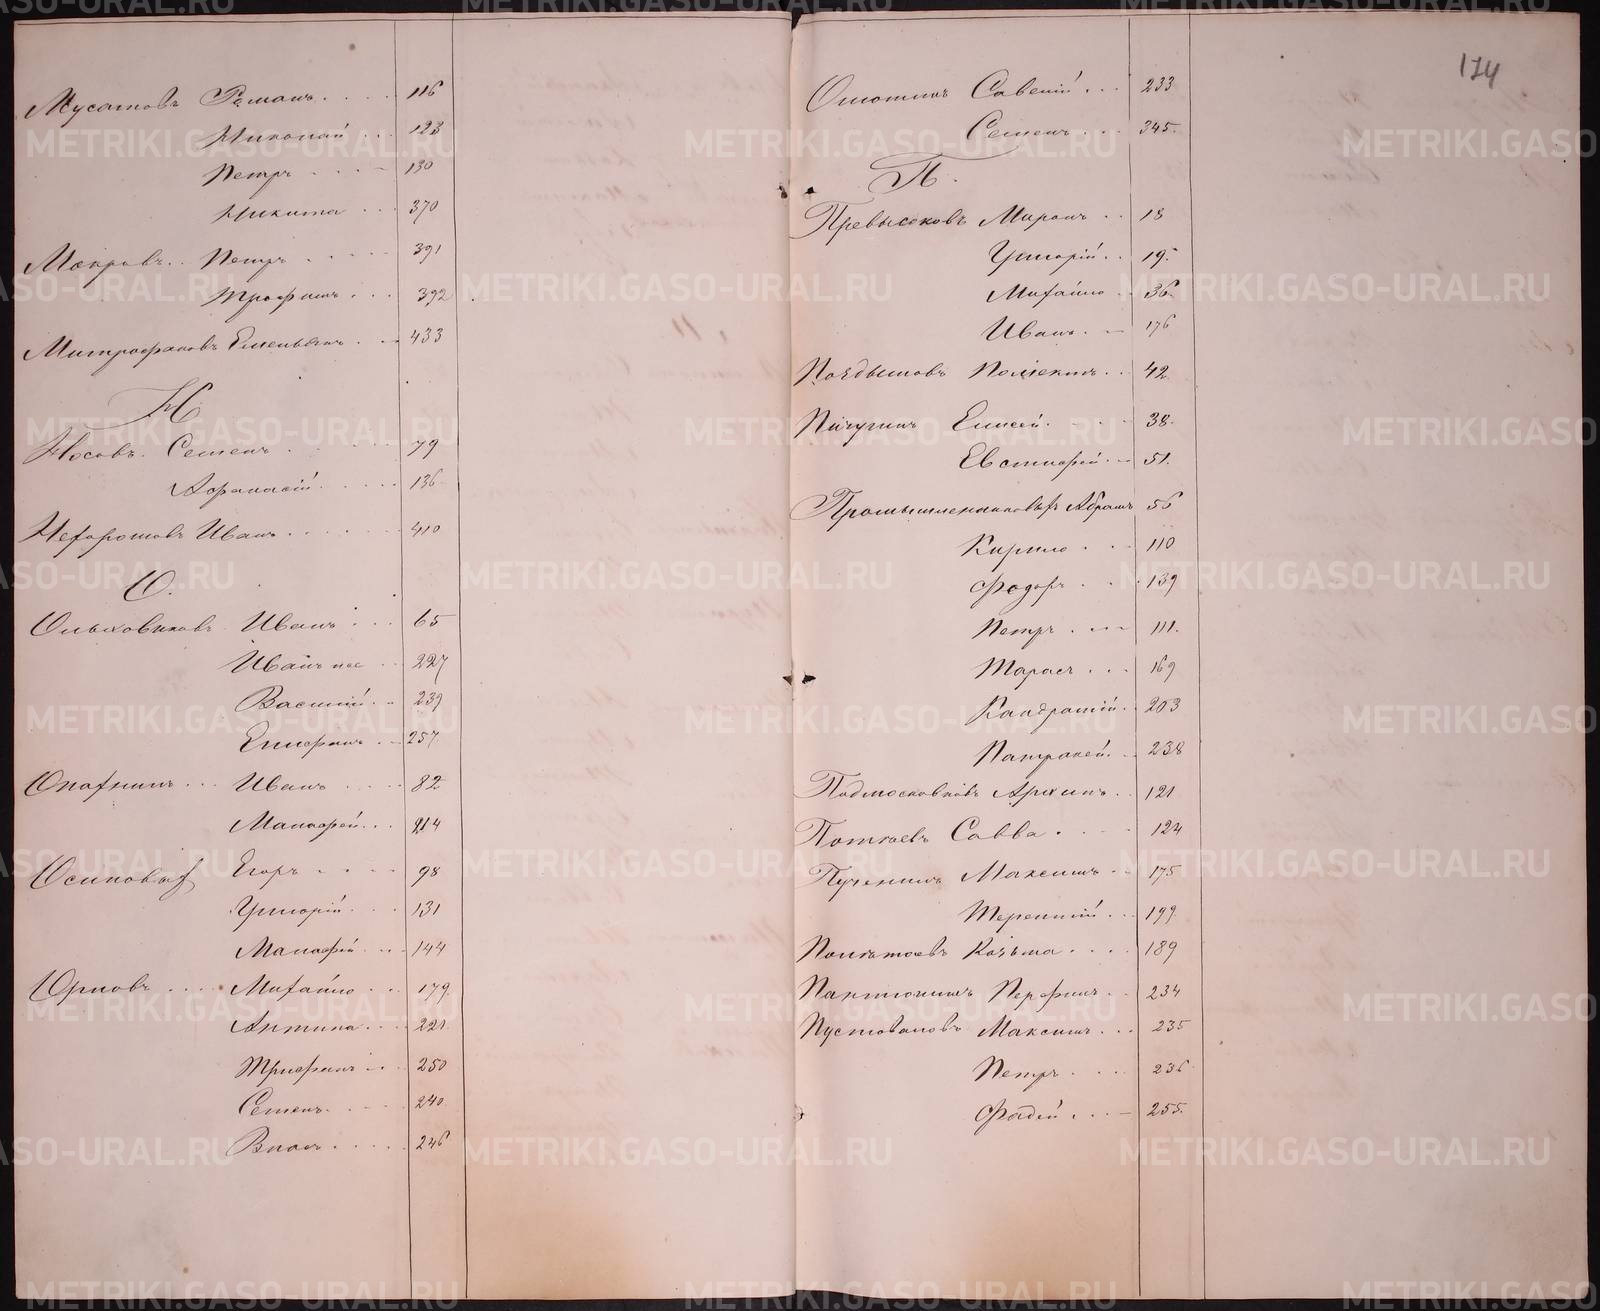 Мусатовъ Романъ 116
Николай 123
Петръ 130
Никита 370
Мокровъ Петръ 391
Трофимъ 392
Митрофановъ Емельянъ 433
Н
Носовъ Семенъ 79
Афанасій 136
Нехорошовъ Иванъ 410
О
Ольховиковъ Иванъ 65
Иванъ 227
Василій 239
257
Опахтинъ Иванъ 82
Малафей 214
Осиповых Егоръ 98
Григорій 131
Малафей 144
Орловъ Михайло 179
Антипа 221
Трифанъ 250
Семенъ 240
Власъ 246
174
Савелій 233
Семенъ 345
П.
Миронъ 18
Григорій 19
Михайло 36
Иванъ 176
42
Пичугинъ Елисей 38
Евстифей 51
Промышленниковых Абрамъ 56
Кирило 110
Федоръ 139
Петръ 111
Тарасъ 169
Кандратій 203
Патракей 238
Подмосковновъ Архипъ 121
Савва 124
Максимъ 175
Терентий 199
Козьма 189
Пантюшинъ Перфилъ 234
Пустоваловъ Максимъ 235
Петръ 236
Фадей 255
METRIKI.GASO-URAL.RU